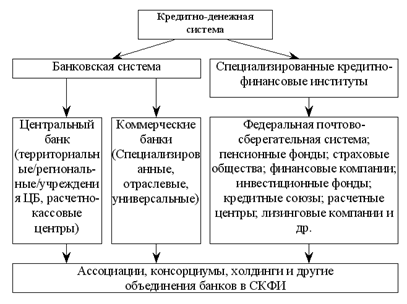 Кредитно-денежная
система
Банковская система
Специализированные кредитно-
финансовые институты
Центральный
банк
(территориаль
ные/региональ-
ные/учреждени
я ЦБ, расчетно-
кассовые
центры)
Коммерческие
банки
(Специализиров
анные,
отраслевые,
универсальные)
Федеральная почтово-
сберегательная система;
пенсионные фонды; страховые
общества; финансовые компании;
инвестиционные фонды;
кредитные союзы; расчетные
центры; лизинговые компании и
др.
Ассоциации, консорциумы, холдинги и другие
объединения банков в СКФИ